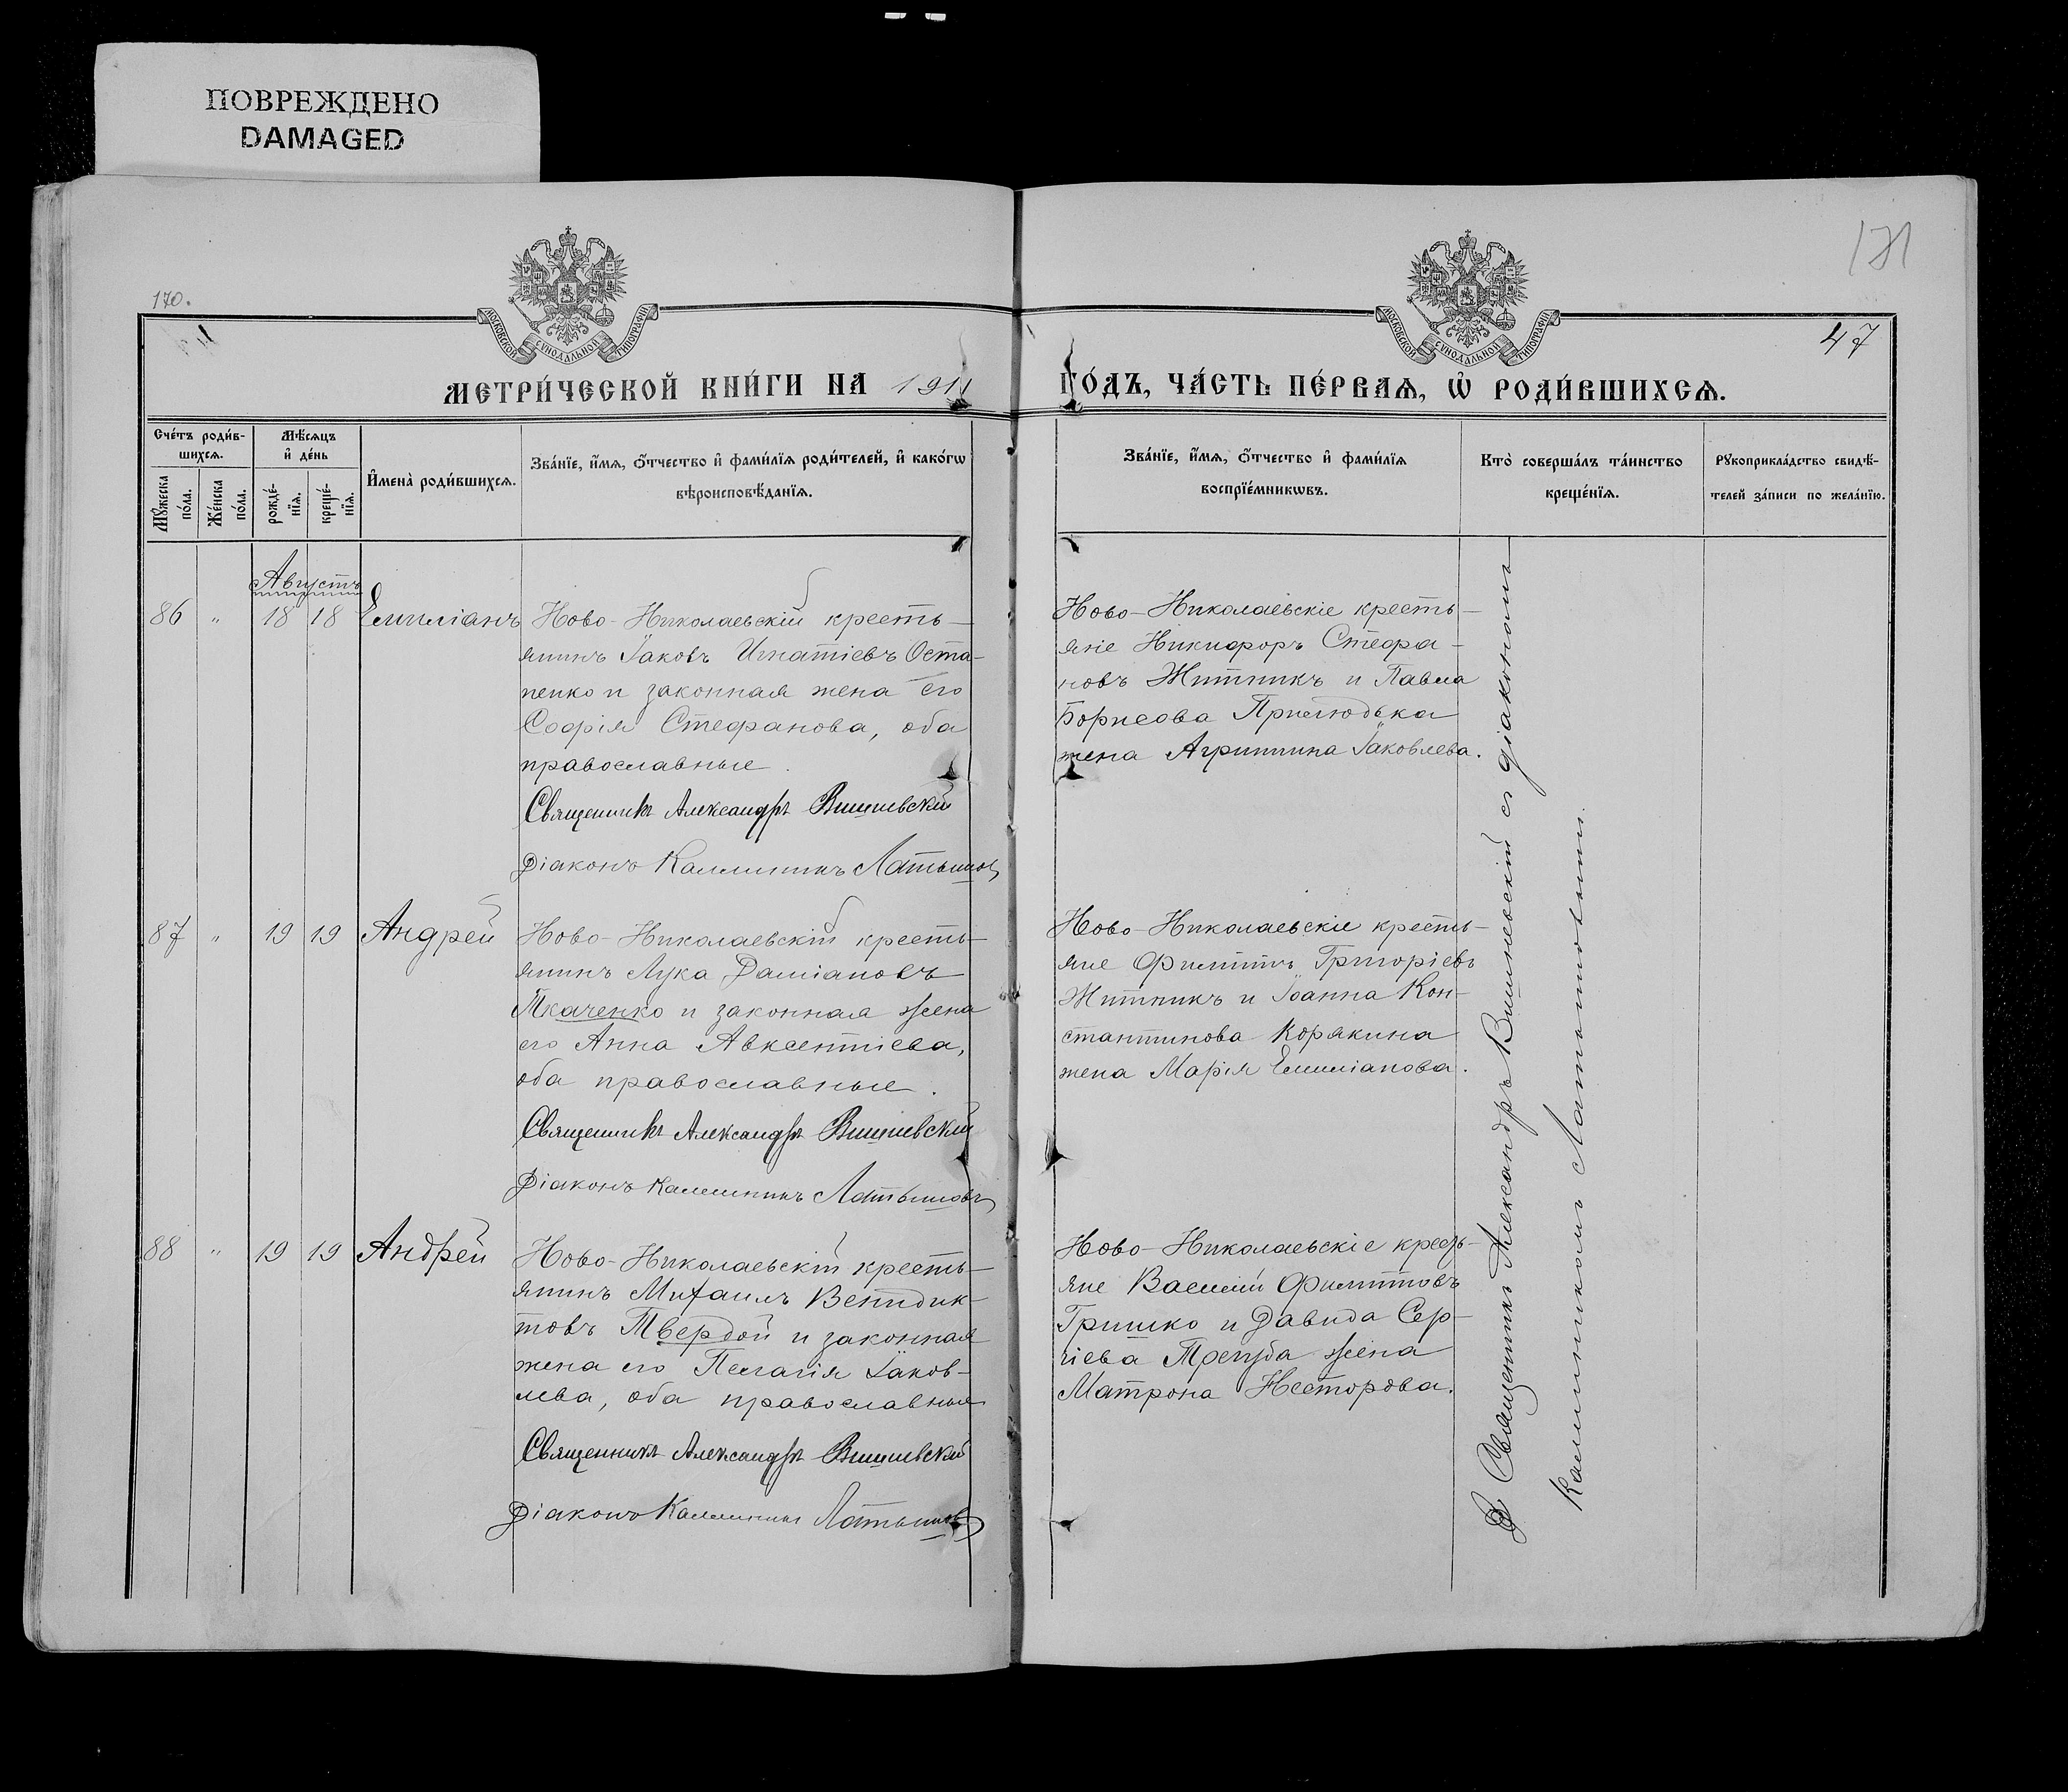 ПОВРЕЖДЕНО
DAMAGED
170.
171
47
МОСКОВСКОЙ СѴНОДАЛЬНОЙ ТИПОГРАФІИ
МОСКОВСКОЙ СѴНОДАЛЬНОЙ ТИПОГРАФІИ
МЕТРИ́ЧЕСКОЙ КНИ́ГИ НА 1911 ГО́ДЪ, ЧА́СТЬ ПЕ́РВАѦ, Ѡ҆ РОДИ́ВШИХСѦ.
Сче́тъ роди́в-
шихсѧ.
Мѣ́сѧцъ
и҆ де́нь
Мꙋ́жеска
по́ла.
Же́нска
по́ла.
рожде́-
нїѧ.
креще́-
нїѧ.
И҆мена̀ роди́вшихсѧ.
Зва́нїе, и҆́мѧ, ѻ҆́тчество и҆ фами́лїѧ роди́телей, и҆ како́гѡ
вѣроисповѣ́данїѧ.
Зва́нїе, и҆́мѧ, ѻ҆́тчество и҆ фами́лїѧ
воспрїе́мникѡвъ.
Кто̀ соверша́лъ та́инство
креще́нїѧ.
Рꙋкоприкла́дство свидѣ́-
телей за́писи по жела́нїю.
Августъ
86 " 18 18 Емиліанъ
Ново-Николаевскій кресть-
янинъ Іаковъ Игнатіевъ Оста-
пенко и законная жена его
Софія Стефанова, оба
православные.
Священникъ Александръ Вишневскій
Діаконъ Каллиникъ Латышовъ
Ново-Николаевскіе кресть-
яне Никифоръ Стефа-
новъ Житникъ и Павла
Борисова Прилюдька
жена Агриппина Іаковлева.
87 " 19 19 Андрей
Ново-Николаевскій кресть-
янинъ Лука Даміановъ
Ткаченко и законная жена
его Анна Авксентіева,
оба православные.
Священникъ Александръ Вишневскій
Діаконъ Каллиникъ Латышовъ
Ново-Николаевскіе кресть-
яне Филиппъ Григоріевъ
Житникъ и Іоанна Кон-
стантинова Корякина
жена Марія Емиліанова.
88 " 19 19 Андрей
Ново-Николаевскій кресть-
янинъ Михаилъ Венидик-
товъ Твердой и законная
жена его Пелагія Іаков-
лева, оба православные
Священникъ Александръ Вишневскій
Діаконъ Каллиникъ Латышовъ
Ново-Николаевскіе кресть-
яне Василій Филипповъ
Гришко и Давида Сер-
гіева Трегуба жена
Матрона Несторова.
Священникъ Александръ Вишневскій съ діакономъ
Каллиникомъ Латышовымъ.